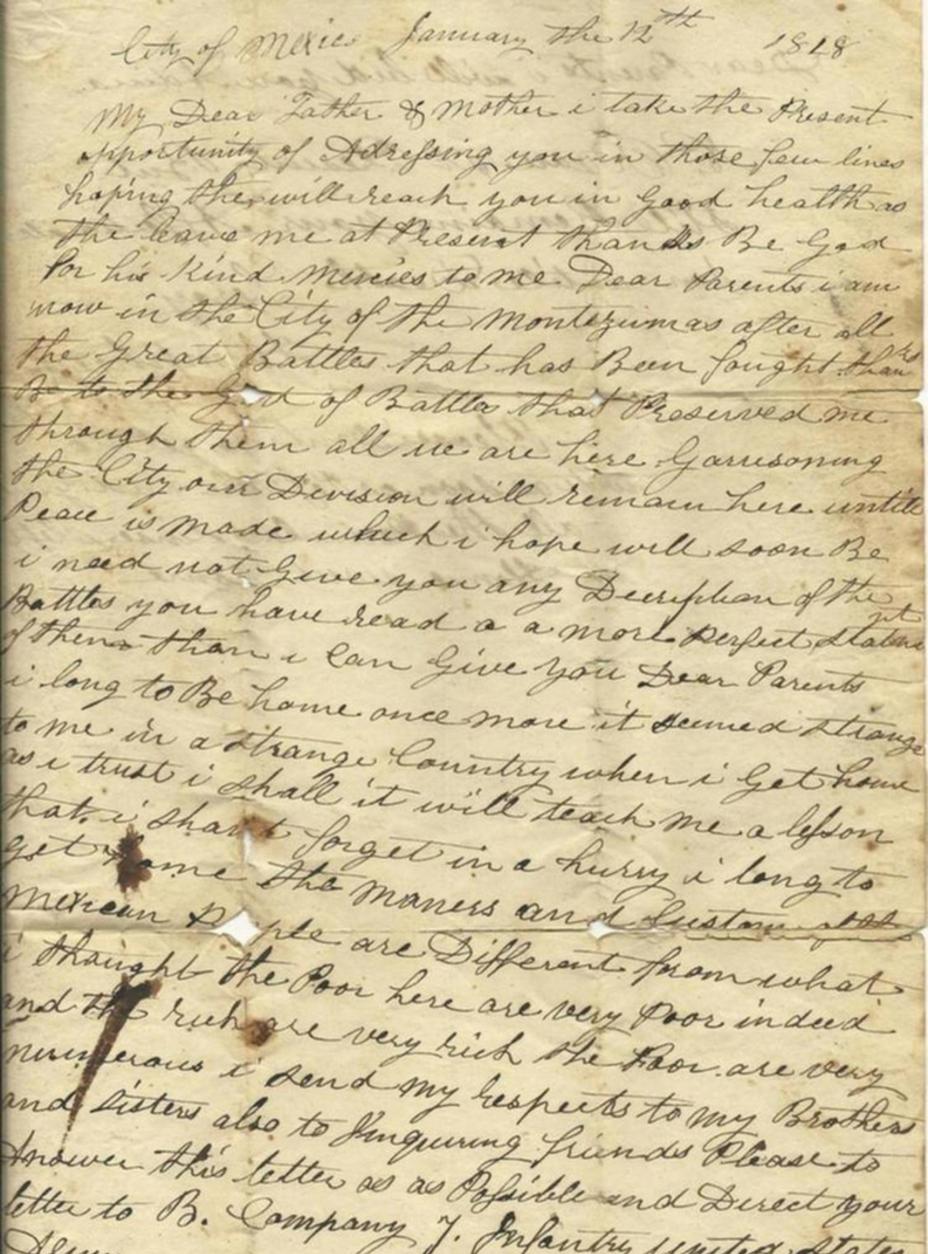 City of Mexico January the 12th 1848
My Dear Father & Mother i take the Present
opportunity of Adressing you in those few lines
hoping the will reach you in Good health as
the leave me at Present thanks Be God
for his Kind Mercies to me Dear Parents i am
now in the City of the Montezumas after all
the Great Battles that has Been fought thanks
Be to the God of Battles that Preserved me
through them all we are here Garrisoning
the City our Division will remain here untill
Peace is made which i hope will soon Be
i need not Give you any Decription of the
Battles you have read a a more Perfect statement
of them than i Can Give you Dear Parents
i long to Be home once more it seemed strange
to me in a strange Country when i Get home
as i trust i shall it will teach me a lesson
that i shant forget in a hurry i long to
get home the Maners and Customs of the
Mexican People are Different from what
i thought the Poor here are very Poor indeed
and the rich are very rich the Poor are very
numerous i send my respects to my Brothers
and Sisters also to Inquiring friends Please to
Answer this letter as as Possible and Direct your
letter to B. Company 7. Infantry United States